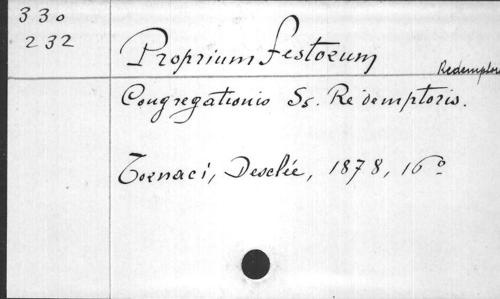 330
232
Proprium festorum
Redemptoris
Congregationis Ss. Redemptoris.
Tornaci, Desclée, 1878, 16º